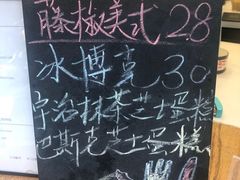 藤椒美式 28
冰博克 30
宇治抹茶芝士蛋糕
巴斯克芝士蛋糕